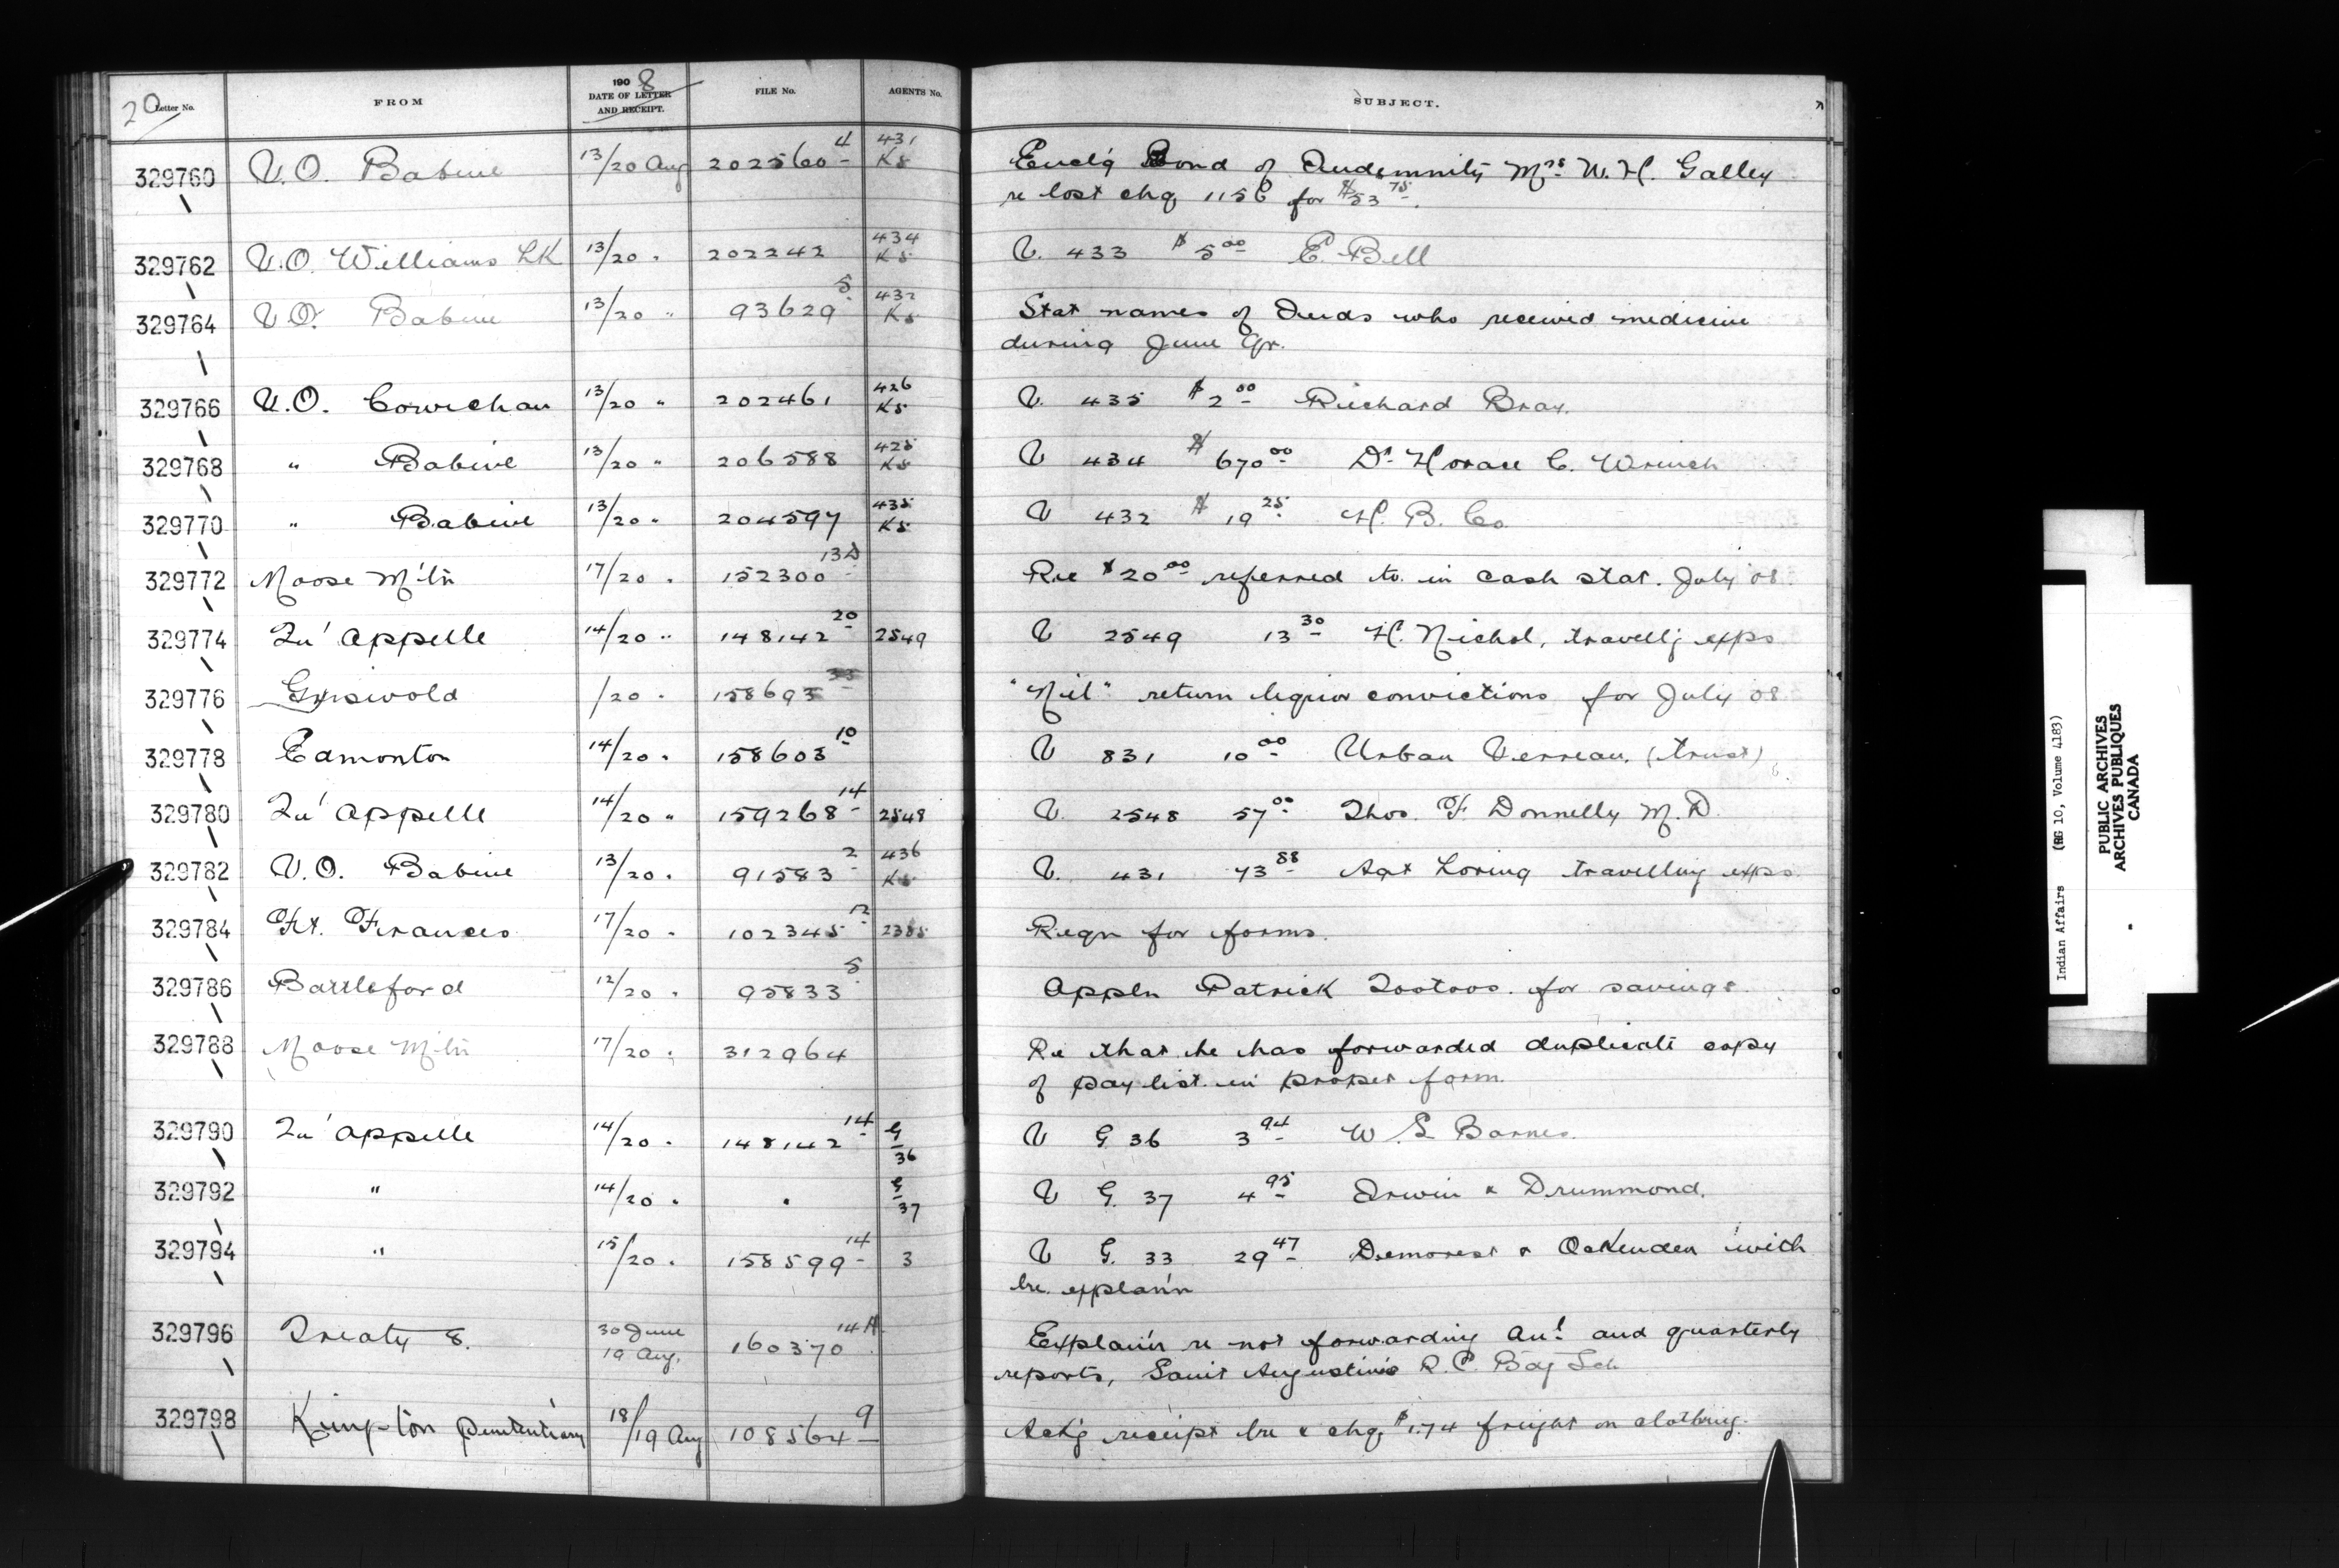 20 Letter No. FROM 1908 DATE OF LETTER AND RECEIPT. FILE No. AGENTS No. SUBJECT.
329760 V.O. Babine 13/20 Aug 202560 4 431 K5 Encl'g Bond of Indemnity Mrs W. H. Galley
re lost chq 1156 for $53 75.
329762 V.O. Williams LK 13/20 " 202242 434 K5 V. 433 $5 00 E. Bell
329764 V.O. Babine 13/20 " 93629 5 432 K5 Stat names of Inds who received medicine
during June Qr.
329766 V.O. Cowichan 13/20 " 202461 426 K5 V. 435 $2 00 Richard Bray.
329768 " Babine 13/20 " 206588 425 K5 V 434 $670 00 Dr Horace C. Wrinch
329770 " Babine 13/20 " 204597 435 K5 V 432 $19 25 H. B. Co
329772 Moose M'tn 17/20 " 152300 13A Re $20 00 referred to in cash stat. July 08
329774 Qu'Appelle 14/20 " 148142 20 2549 V 2549 13 30 H. Nichol, travell'g exps
329776 Griswold /20 " 158693 33 "Nil" return liquor convictions for July 08
329778 Edmonton 14/20 " 158603 10 V 831 10 00 Urban Verreau. (trust)
329780 Qu'Appelle 14/20 " 159268 14 2548 V. 2548 57 00 Thos. F. Donnelly M.D.
329782 V.O. Babine 13/20 " 91583 2 436 K5 V. 431 73 88 Agt Loring travelling exps.
329784 Ft. Frances 17/20 " 102345 12 2385 Reqn for forms.
329786 Battleford 12/20 " 95833 5 Appln Patrick Tootoos. for savings.
329788 Moose M'tn 17/20 " 312964 Re that he has forwarded duplicate copy
of pay list in proper form.
329790 Qu'Appelle 14/20 " 148142 14 G 36 V G 36 3 94 W. S. Barnes.
329792 " 14/20 " " G 37 V G. 37 4 95 Irwin & Drummond.
329794 " 15/20 " 158599 14 3 V G. 33 29 47 Demorest & Ockenden with
lre. explan'n
329796 Treaty 8. 30 June 19 Aug. 160370 14A Explan'n re not forwarding an'l and quarterly
reports, Saint Augustine's R.C. Bdg Sch
329798 Kingston Penitentiary 18/19 Aug 108564 9 Ack'g receipt lre & chq $1.74 freight on clothing.
Indian Affairs (RG 10, Volume 4183)
PUBLIC ARCHIVES
ARCHIVES PUBLIQUES
CANADA